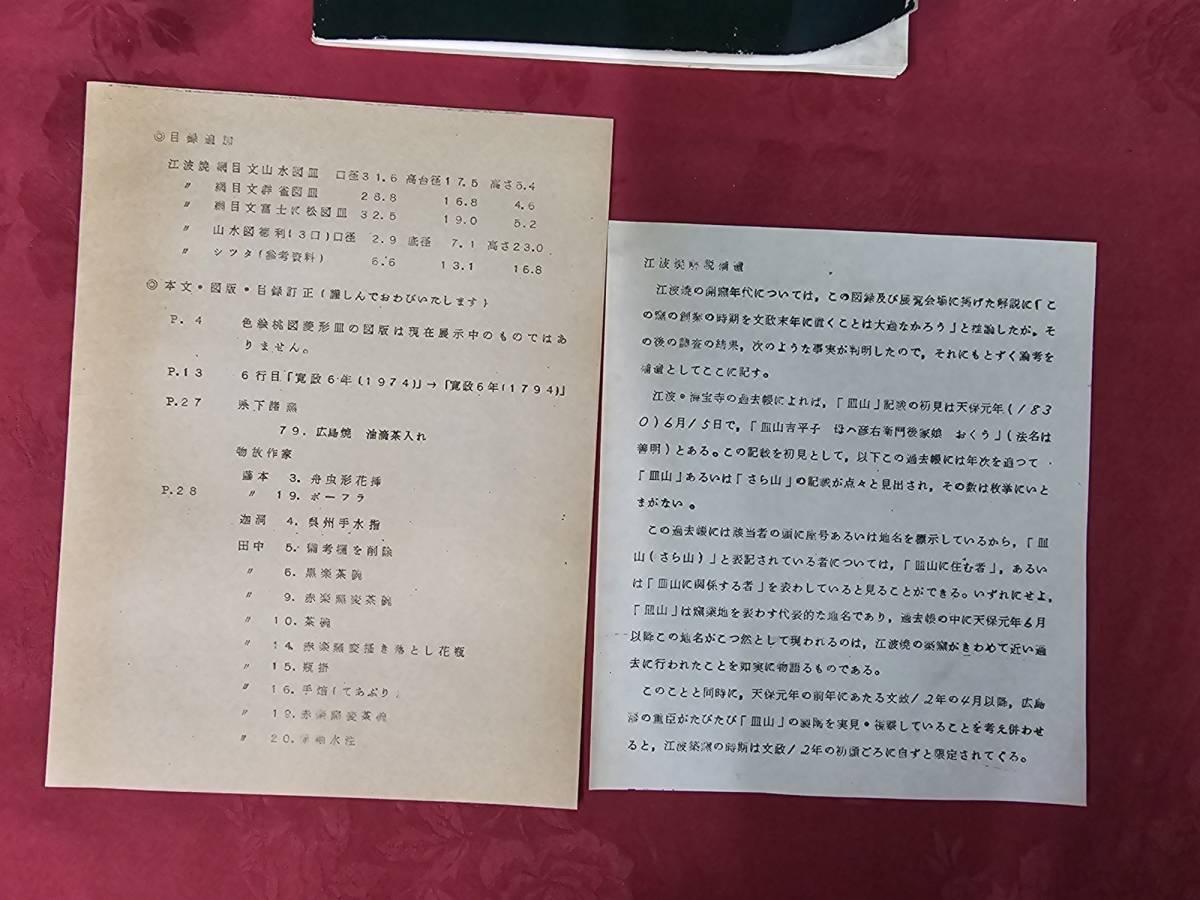 ◎目録追加
江波焼網目文山水図皿 口径31.6 高台径17.5 高さ5.4
〃 網目文群雀図皿 28.8 16.8 4.6
〃 網目文富士に松図皿 32.5 19.0 5.2
〃 山水図徳利(3口)口径 2.9 底径 7.1 高さ23.0
〃 シツタ(参考資料) 6.6 13.1 16.8
◎本文・図版・目録訂正(謹しんでおわびいたします)
P.4 色絵桃図菱形皿の図版は現在展示中のものではあ
りません。
P.13 6行目「寛政6年(1974)」→「寛政6年(1794)」
P.27 県下諸窯
79.広島焼 油滴茶入れ
物故作家
藤本 3.舟虫形花挿
P.28 〃 19.ボーフラ
迦洞 4.呉州手水指
田中 5.備考欄を削除
〃 6.黒楽茶碗
〃 9.赤楽窯変茶碗
〃 10.茶碗
〃 14.赤楽窯変掻き落とし花瓶
〃 15.瓶掛
〃 16.手焙(てあぶり)
〃 19.赤楽窯変茶碗
〃 20.水注
江波焼解説補遺
江波焼の開窯年代については,この図録及び展覧会場に掲げた解説に「こ
の窯の創業の時期を文政末年に置くことは大過なかろう」と推論したが,そ
の後の調査の結果,次のような事実が判明したので,それにもとずく論考を
補遺としてここに記す。
江波・海宝寺の過去帳によれば,「皿山」記載の初見は天保元年(183
0)6月15日で,「皿山吉平子 母ハ彦右衛門後家娘 おくう」(法名は
善明)とある。この記載を初見として,以下この過去帳には年次を追つて
「皿山」あるいは「さら山」の記載が点々と見出され,その数は枚挙にいと
まがない。
この過去帳には該当者の頭に屋号あるいは地名を標示しているから,「皿
山(さら山)」と表記されている者については,「皿山に住む者」,あるい
は「皿山に関係する者」を表わしていると見ることができる。いずれにせよ,
「皿山」は窯業地を表わす代表的な地名であり,過去帳の中に天保元年6月
以降この地名がこつ然として現われるのは,江波焼の築窯がきわめて近い過
去に行われたことを如実に物語るものである。
このことと同時に,天保元年の前年にあたる文政12年の4月以降,広島
藩の重臣がたびたび「皿山」の製陶を実見・視察していることを考え併わせ
ると,江波築窯の時期は文政12年の初頭ごろに自ずと限定されてくる。